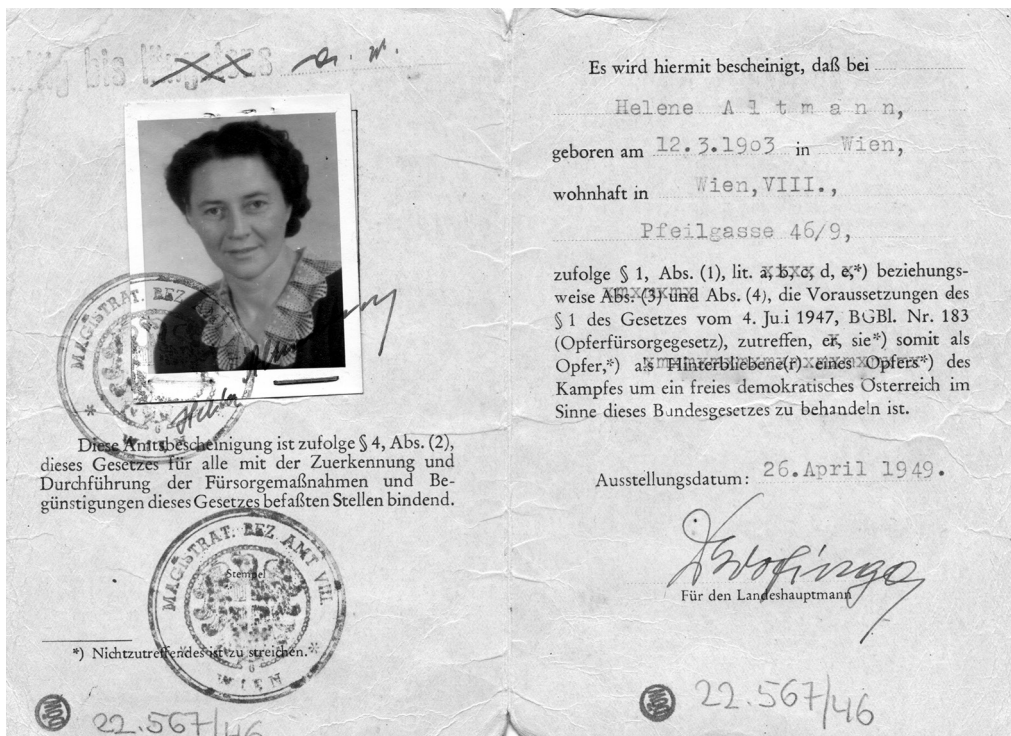 bis längstens
Diese Amtsbescheinigung ist zufolge § 4, Abs. (2),
dieses Gesetzes für alle mit der Zuerkennung und
Durchführung der Fürsorgemaßnahmen und Be-
günstigungen dieses Gesetzes befaßten Stellen bindend.
MAGISTRAT. BEZ
MAGISTRAT. BEZ. AMT VIII.
Stempel
WIEN
*) Nichtzutreffendes ist zu streichen.
22.567/46
Es wird hiermit bescheinigt, daß bei
Helene Altmann,
geboren am 12.3.1903 in Wien,
wohnhaft in Wien,VIII.,
Pfeilgasse 46/9,
zufolge § 1, Abs. (1), lit. a, b, c, d, e,*) beziehungs-
weise Abs. (3) und Abs. (4), die Voraussetzungen des
§ 1 des Gesetzes vom 4. Juli 1947, BGBl. Nr. 183
(Opferfürsorgegesetz), zutreffen, er, sie*) somit als
Opfer,*) als Hinterbliebene(r) eines Opfers*) des
Kampfes um ein freies demokratisches Österreich im
Sinne dieses Bundesgesetzes zu behandeln ist.
Ausstellungsdatum: 26.April 1949.
Für den Landeshauptmann
22.567/46